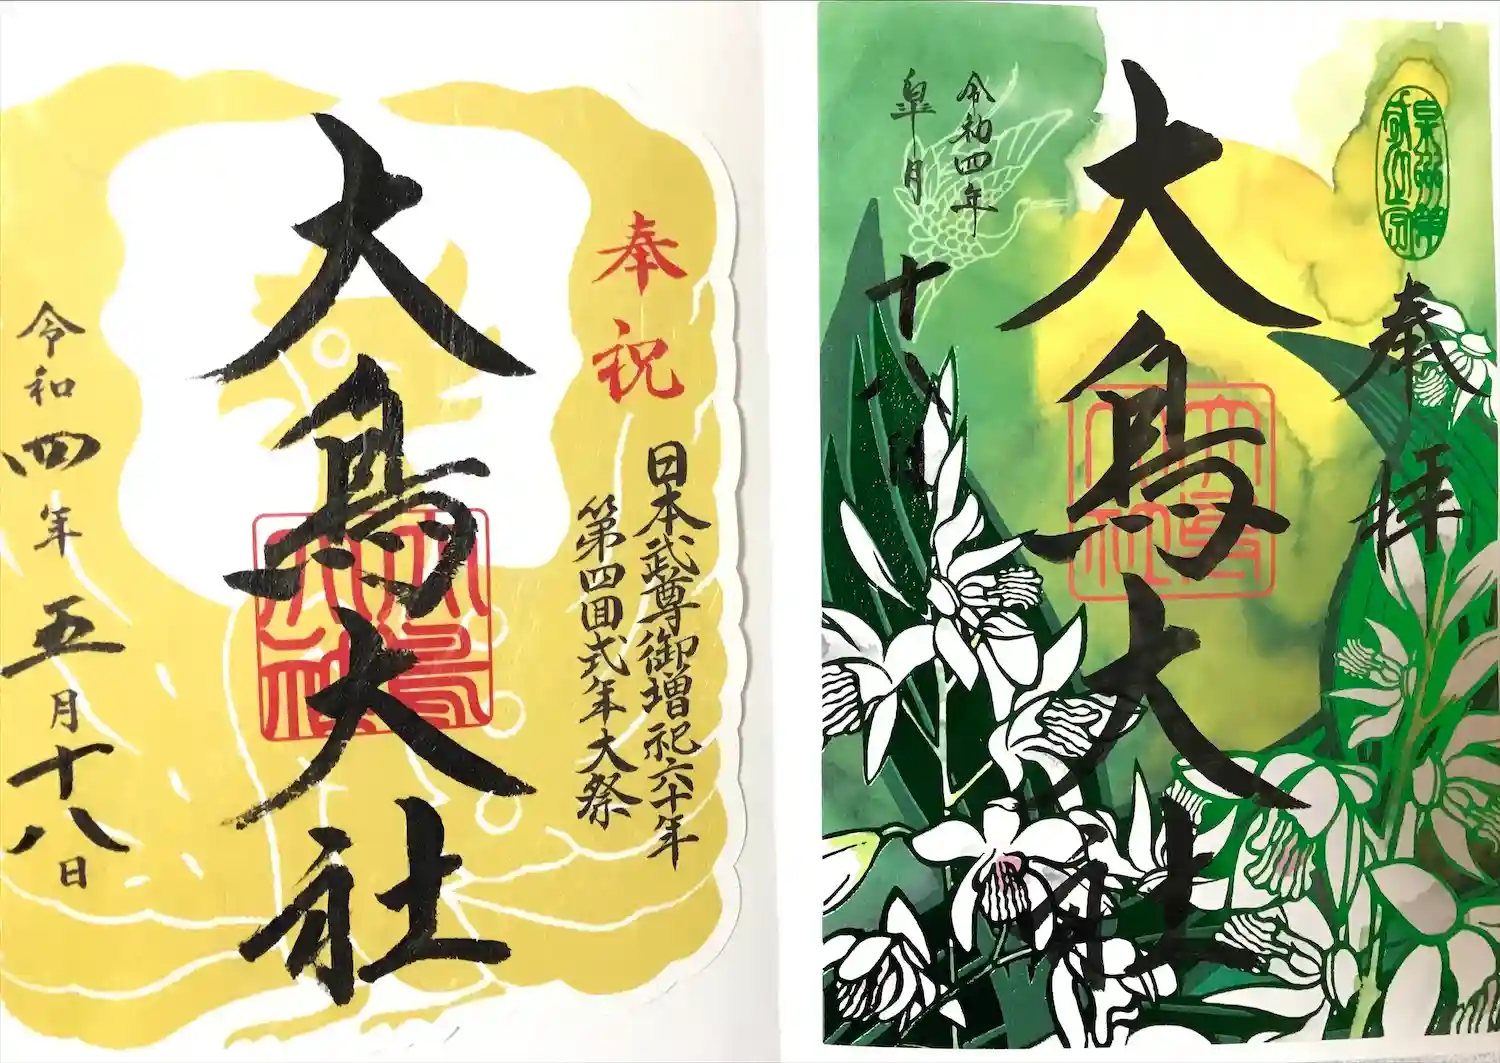 奉祝
日本武尊御増祀六十年
第四回式年大祭
大鳥大社
大鳥大社
令和四年五月十八日
奉拝
大鳥大社
大鳥大社
令和四年
皐月
十八日